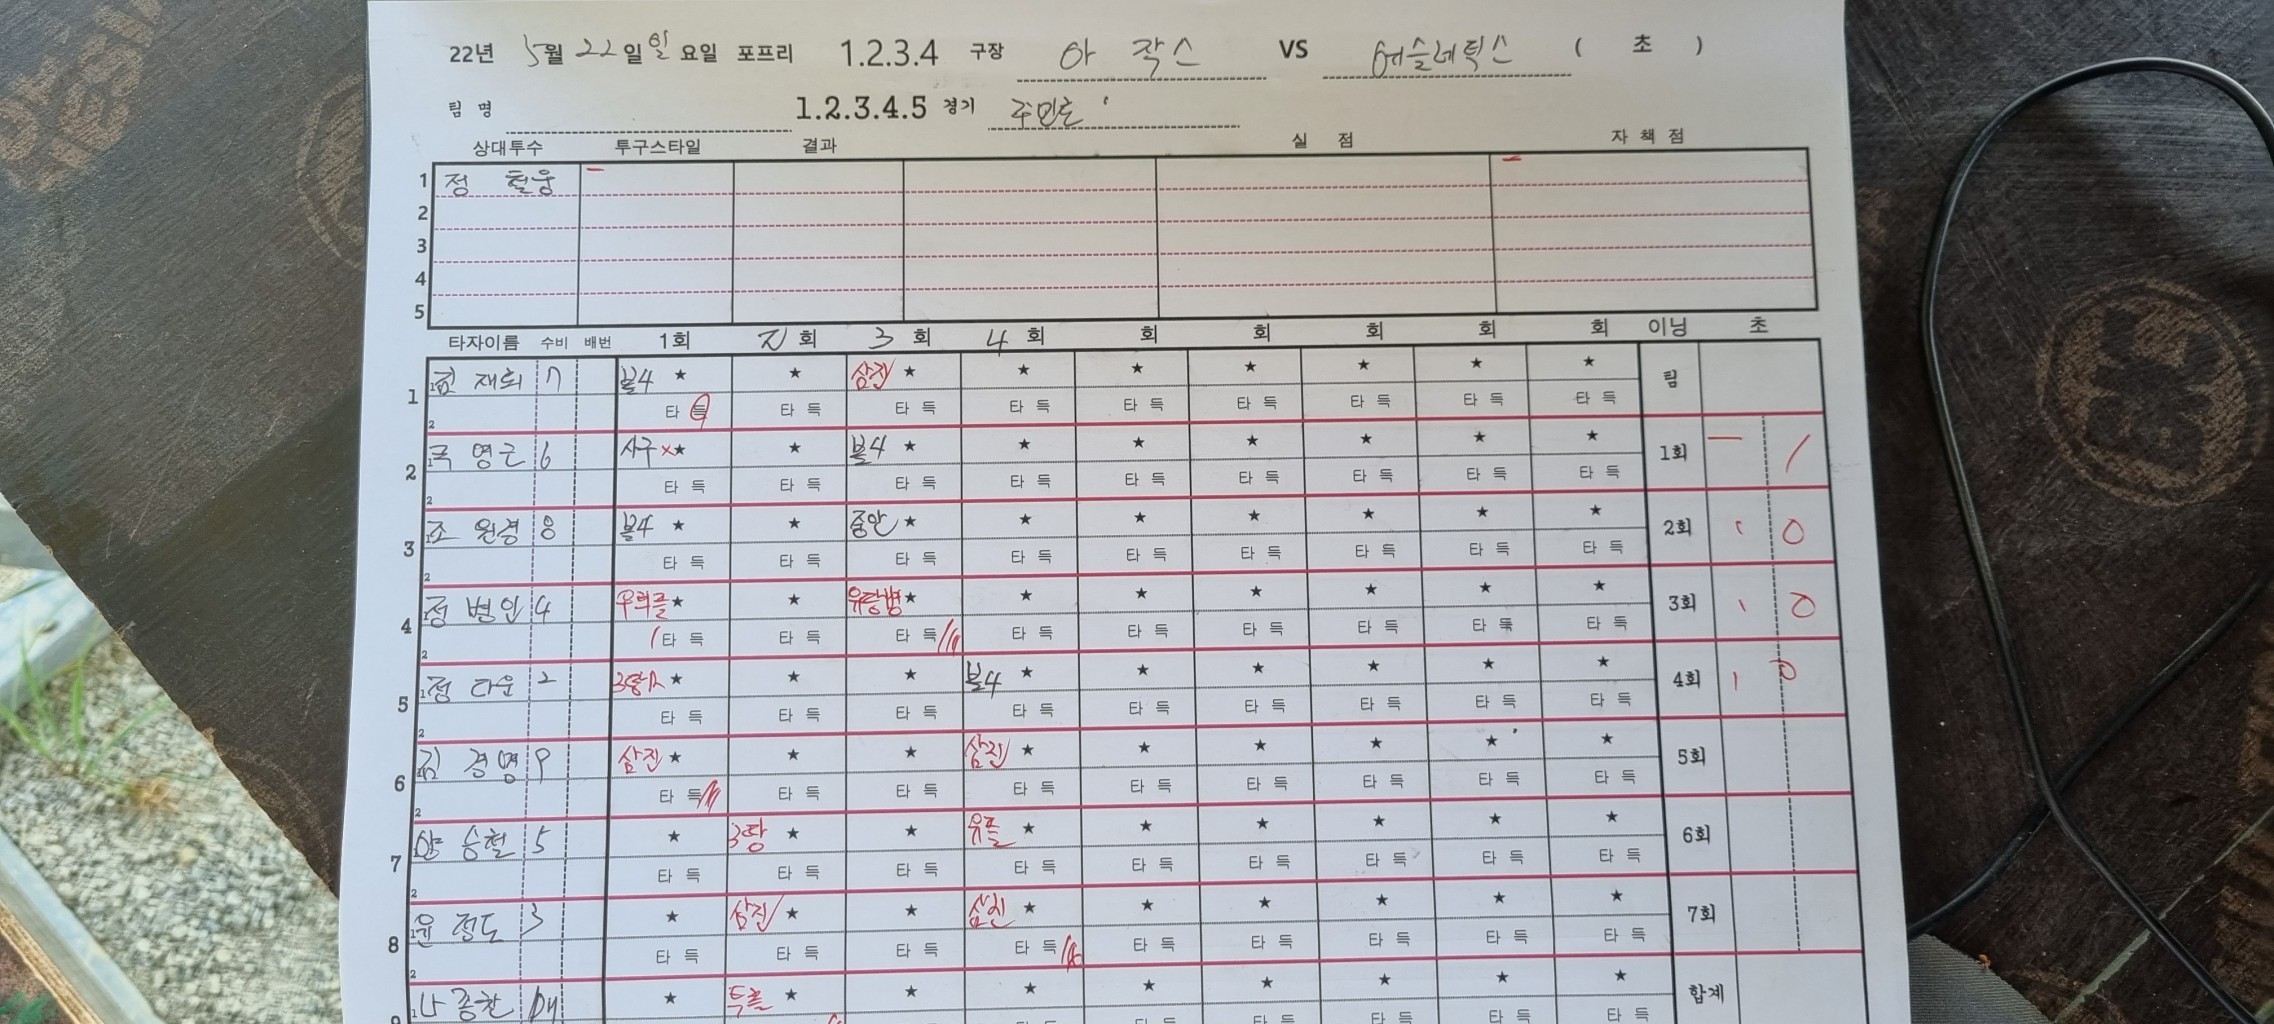 22년 5월 22일 일요일 포프리 1.2.3.4 구장 아 작스 VS 에슬레틱스 ( 초 )
팀 명 1.2.3.4.5 경기
상대투수 투구스타일 결과 실 점 자 책 점
1 정 철웅
2
3
4
5
타자이름 수비 배번 1회 2회 3회 4회 회 회 회 회 회 이닝 초
1 김 재희 7 볼4 ★ ★ 삼진 ★ ★ ★ ★ ★ ★ ★ 팀
타 득 타 득 타 득 타 득 타 득 타 득 타 득 타 득 타 득
2 국 영근 6 사구 ★ ★ 볼4 ★ ★ ★ ★ ★ ★ ★ 1회 1
타 득 타 득 타 득 타 득 타 득 타 득 타 득 타 득 타 득
3 조 원경 8 볼4 ★ ★ 중안 ★ ★ ★ ★ ★ ★ ★ 2회 0
타 득 타 득 타 득 타 득 타 득 타 득 타 득 타 득 타 득
4 정 병인 4 ★ ★ 유땅병 ★ ★ ★ ★ ★ ★ ★ 3회 0
타 득 타 득 타 득 타 득 타 득 타 득 타 득 타 득 타 득
5 정 다운 2 ★ ★ ★ 볼4 ★ ★ ★ ★ ★ ★ 4회 0
타 득 타 득 타 득 타 득 타 득 타 득 타 득 타 득 타 득
6 김 경명 9 삼진 ★ ★ ★ 삼진 ★ ★ ★ ★ ★ ★ 5회
타 득 타 득 타 득 타 득 타 득 타 득 타 득 타 득 타 득
7 양 승철 5 ★ 3땅 ★ ★ 유플 ★ ★ ★ ★ ★ ★ 6회
타 득 타 득 타 득 타 득 타 득 타 득 타 득 타 득 타 득
8 윤 정도 3 ★ 삼진 ★ ★ 삼진 ★ ★ ★ ★ ★ ★ 7회
타 득 타 득 타 득 타 득 타 득 타 득 타 득 타 득 타 득
9 나 종찬 ★ 투플 ★ ★ ★ ★ ★ ★ ★ ★ 합계